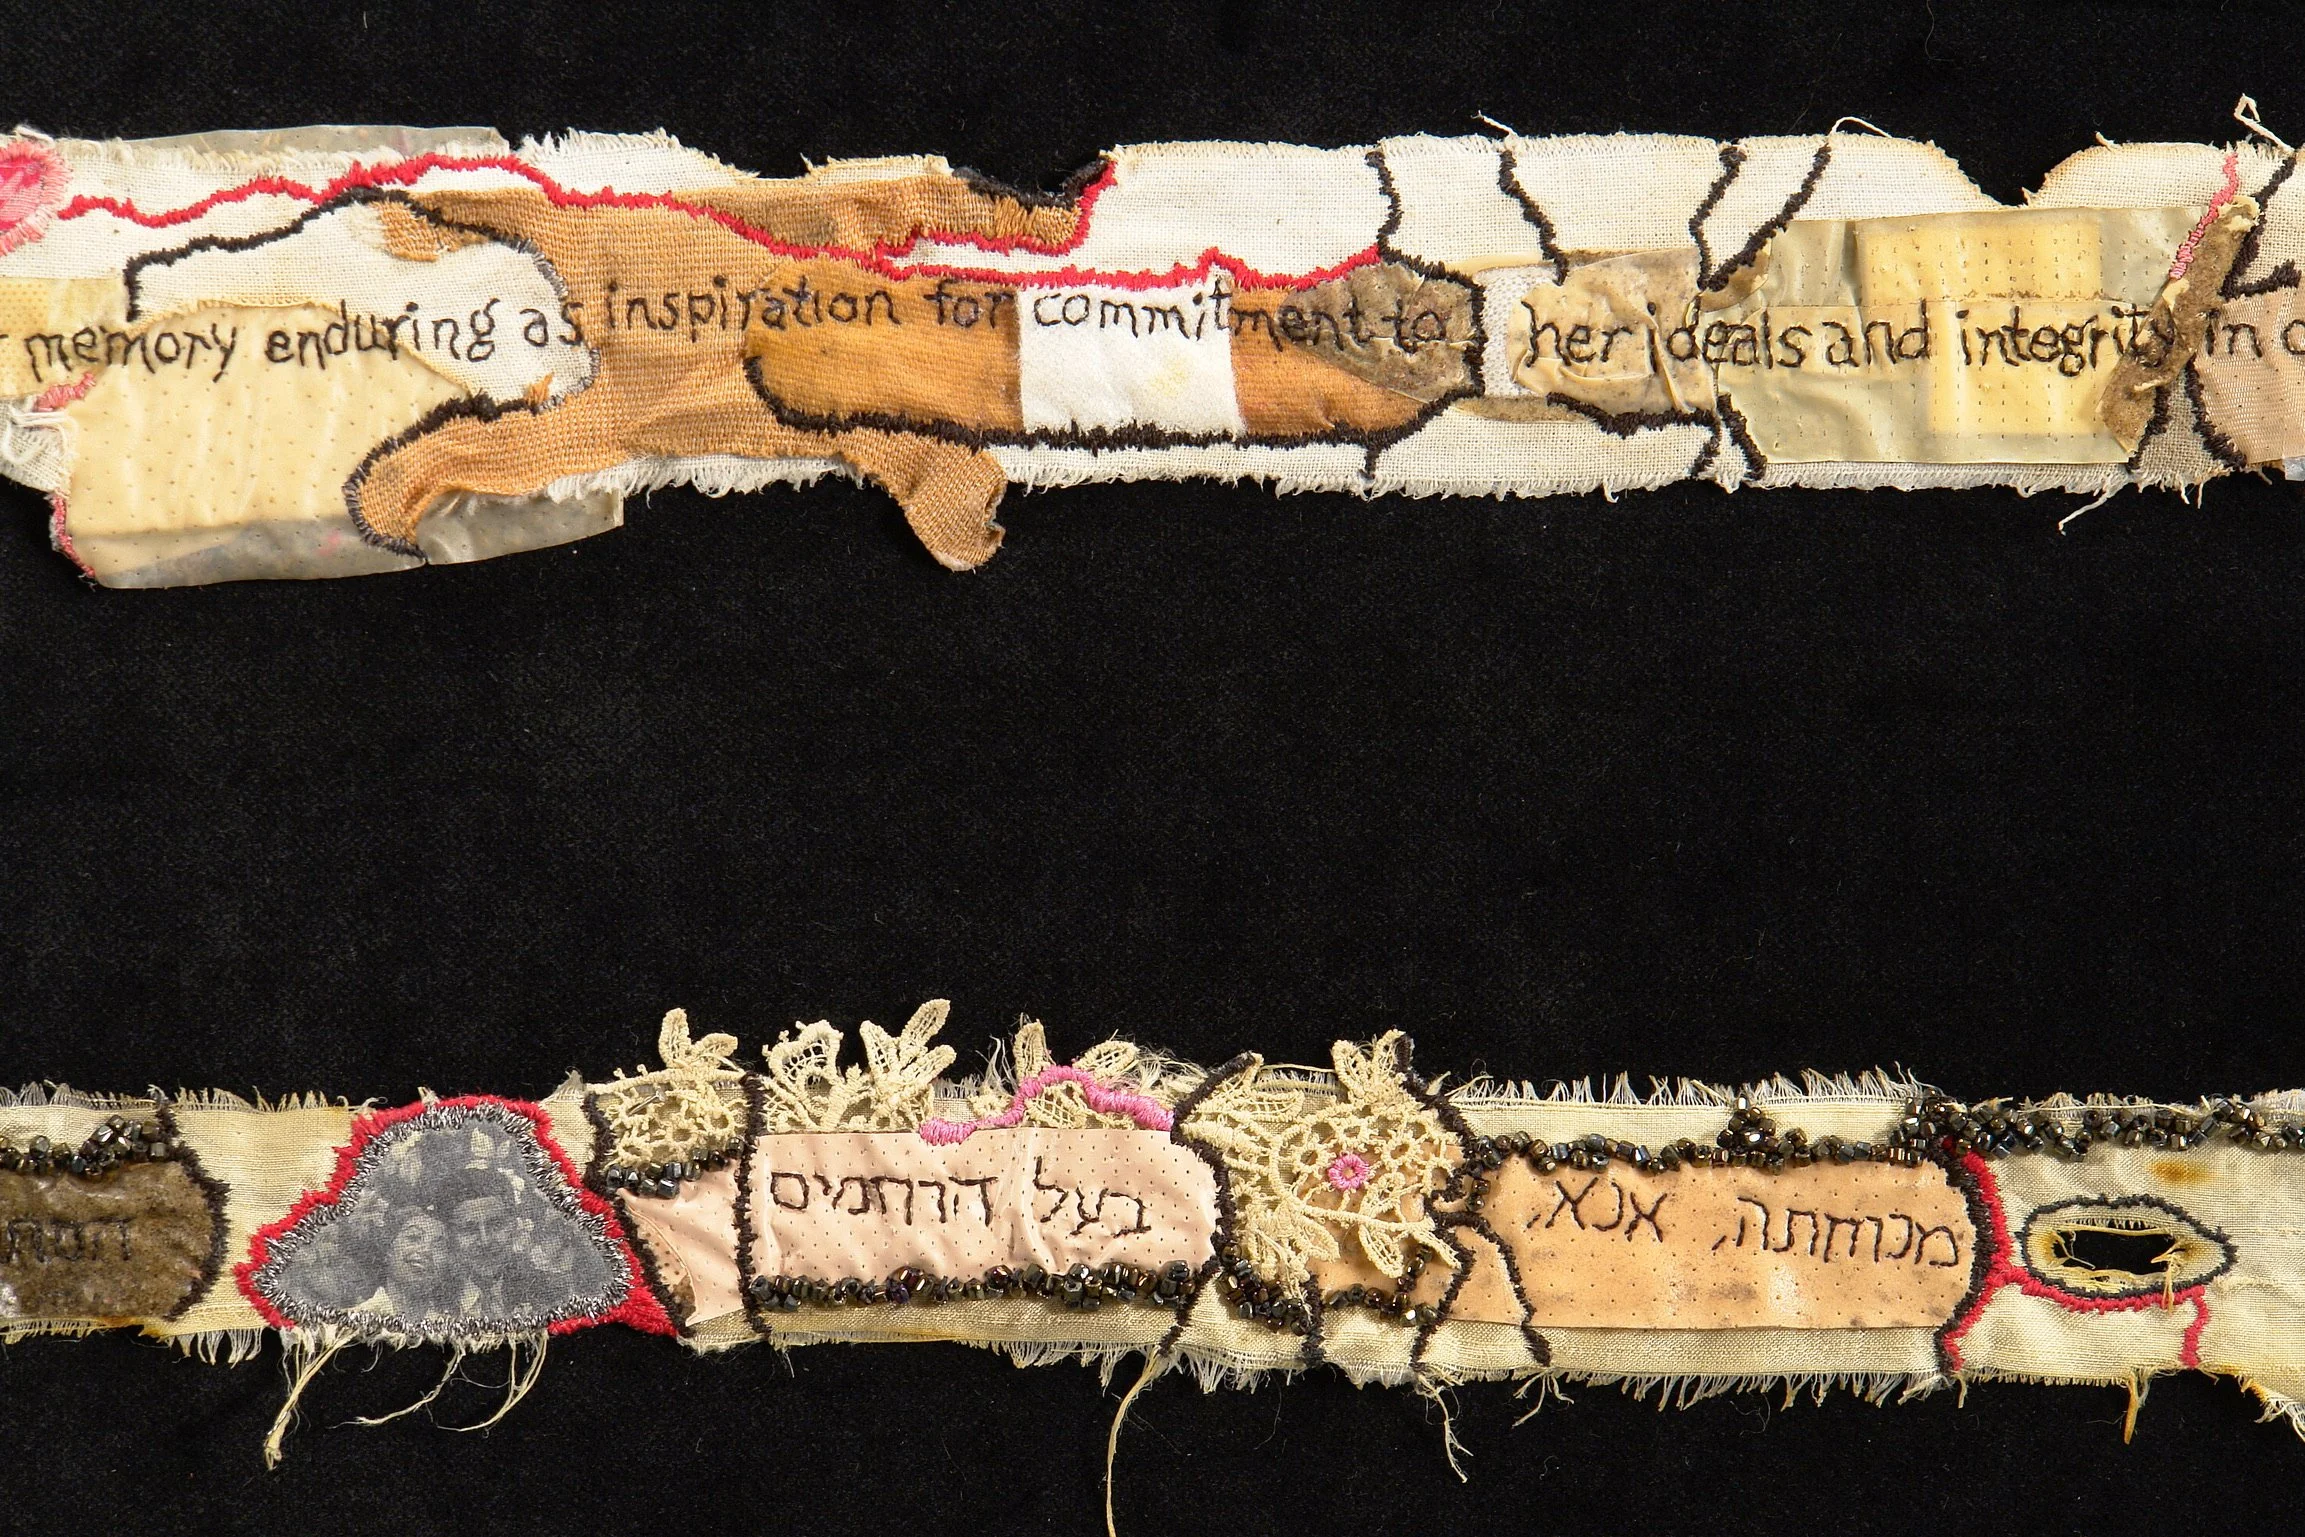 memory enduring as inspiration for commitment to her ideals and integrity in
מנוחתה, אנא, בעל הרחמים